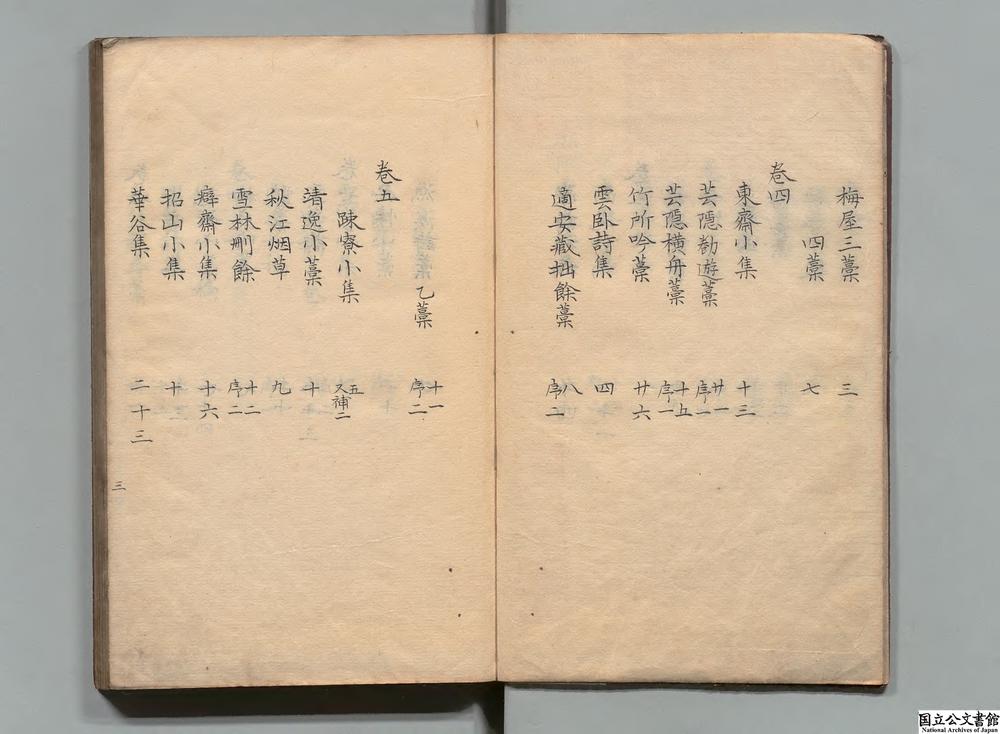 梅屋三藁 三
四藁 七
卷四
東齋小集 十三
芸隠勌遊藁 廿一 序一
芸隠横舟藁 十五 序一
竹所吟藁 廿六
雲臥詩集 四
適安藏拙餘藁 八 序二
乙藁 十一 序二
卷五
疎寮小集 五 又補二
靖逸小藁 十
秋江烟草 九
雪林刪餘 十二 序二
癖齋小集 十六
招山小集 十
華谷集 二十三
三
国立公文書館
National Archives of Japan